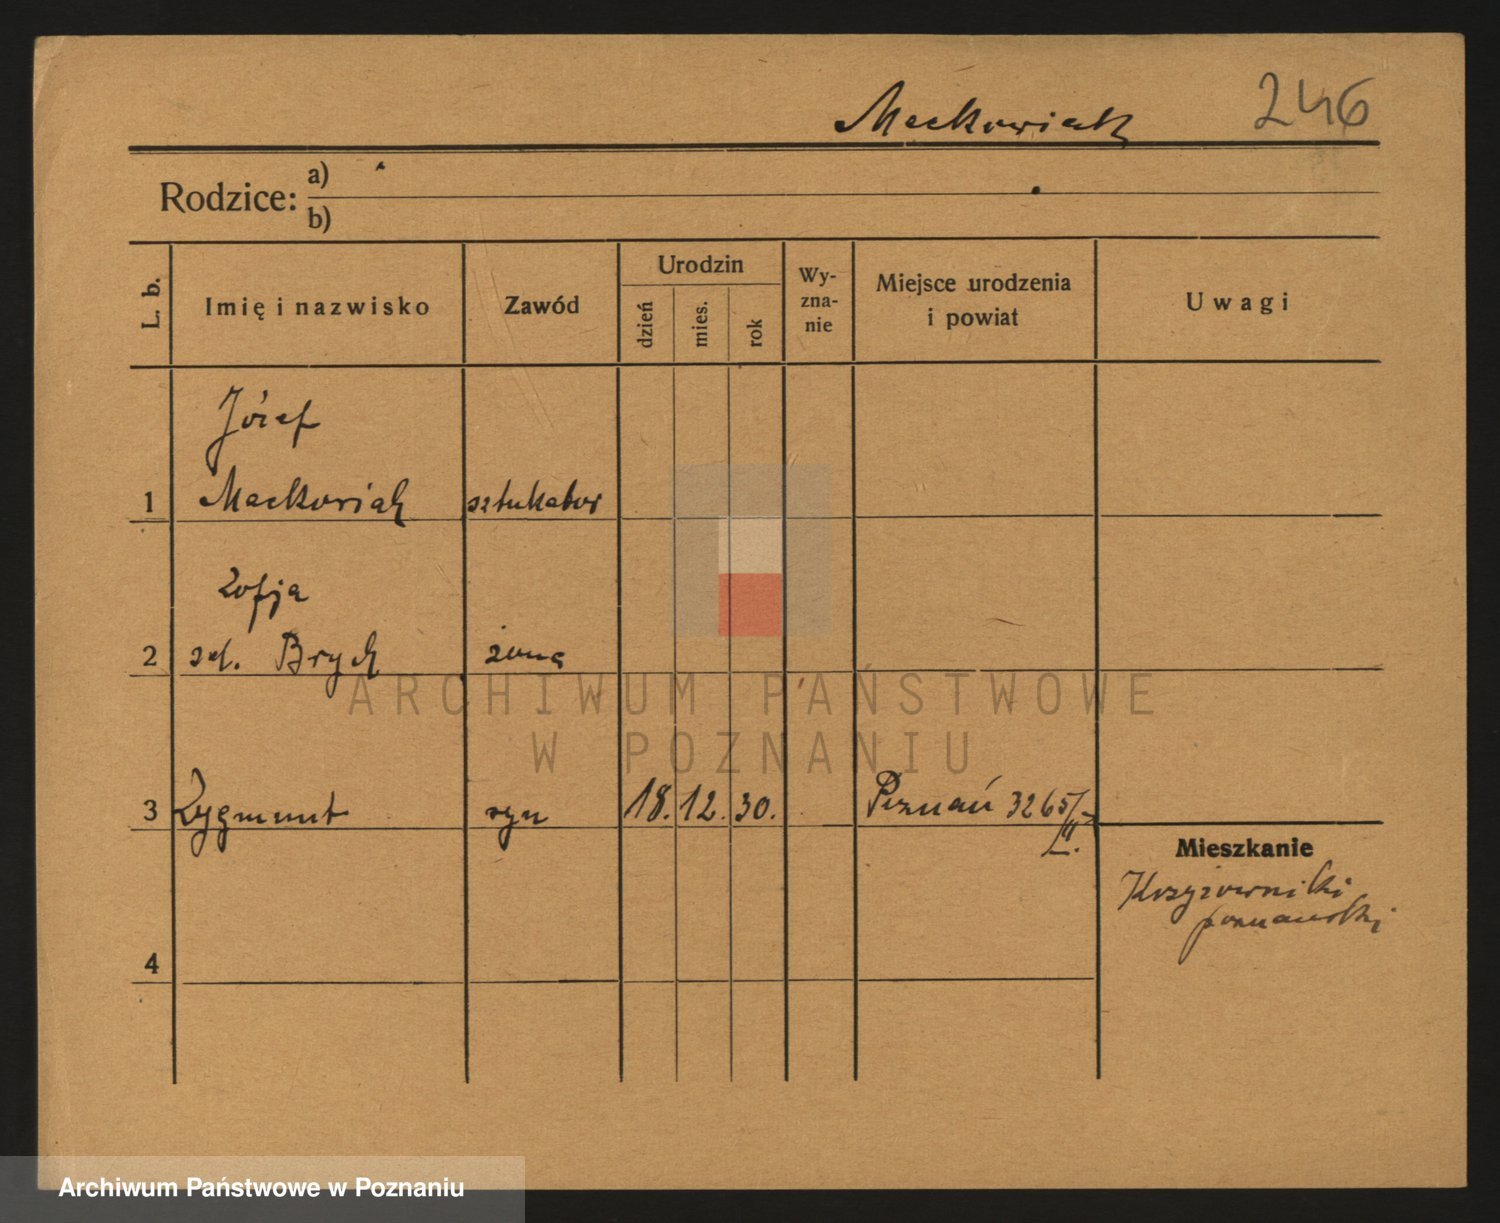 Mackowiak 246
Rodzice: a)
b)
L. b.
Imię i nazwisko
Zawód
Urodzin
dzień
mies.
rok
Wy-
zna-
nie
Miejsce urodzenia
i powiat
Uwagi
Józef
1 Mackowiak sztukator
Zofja
2 Brych żona
3 Zygmunt syn 18. 12. 30. Poznań 3265/
II.
Mieszkanie
Krzyżowniki
poznański
4
ARCHIWUM PAŃSTWOWE
W POZNANIU
Archiwum Państwowe w Poznaniu